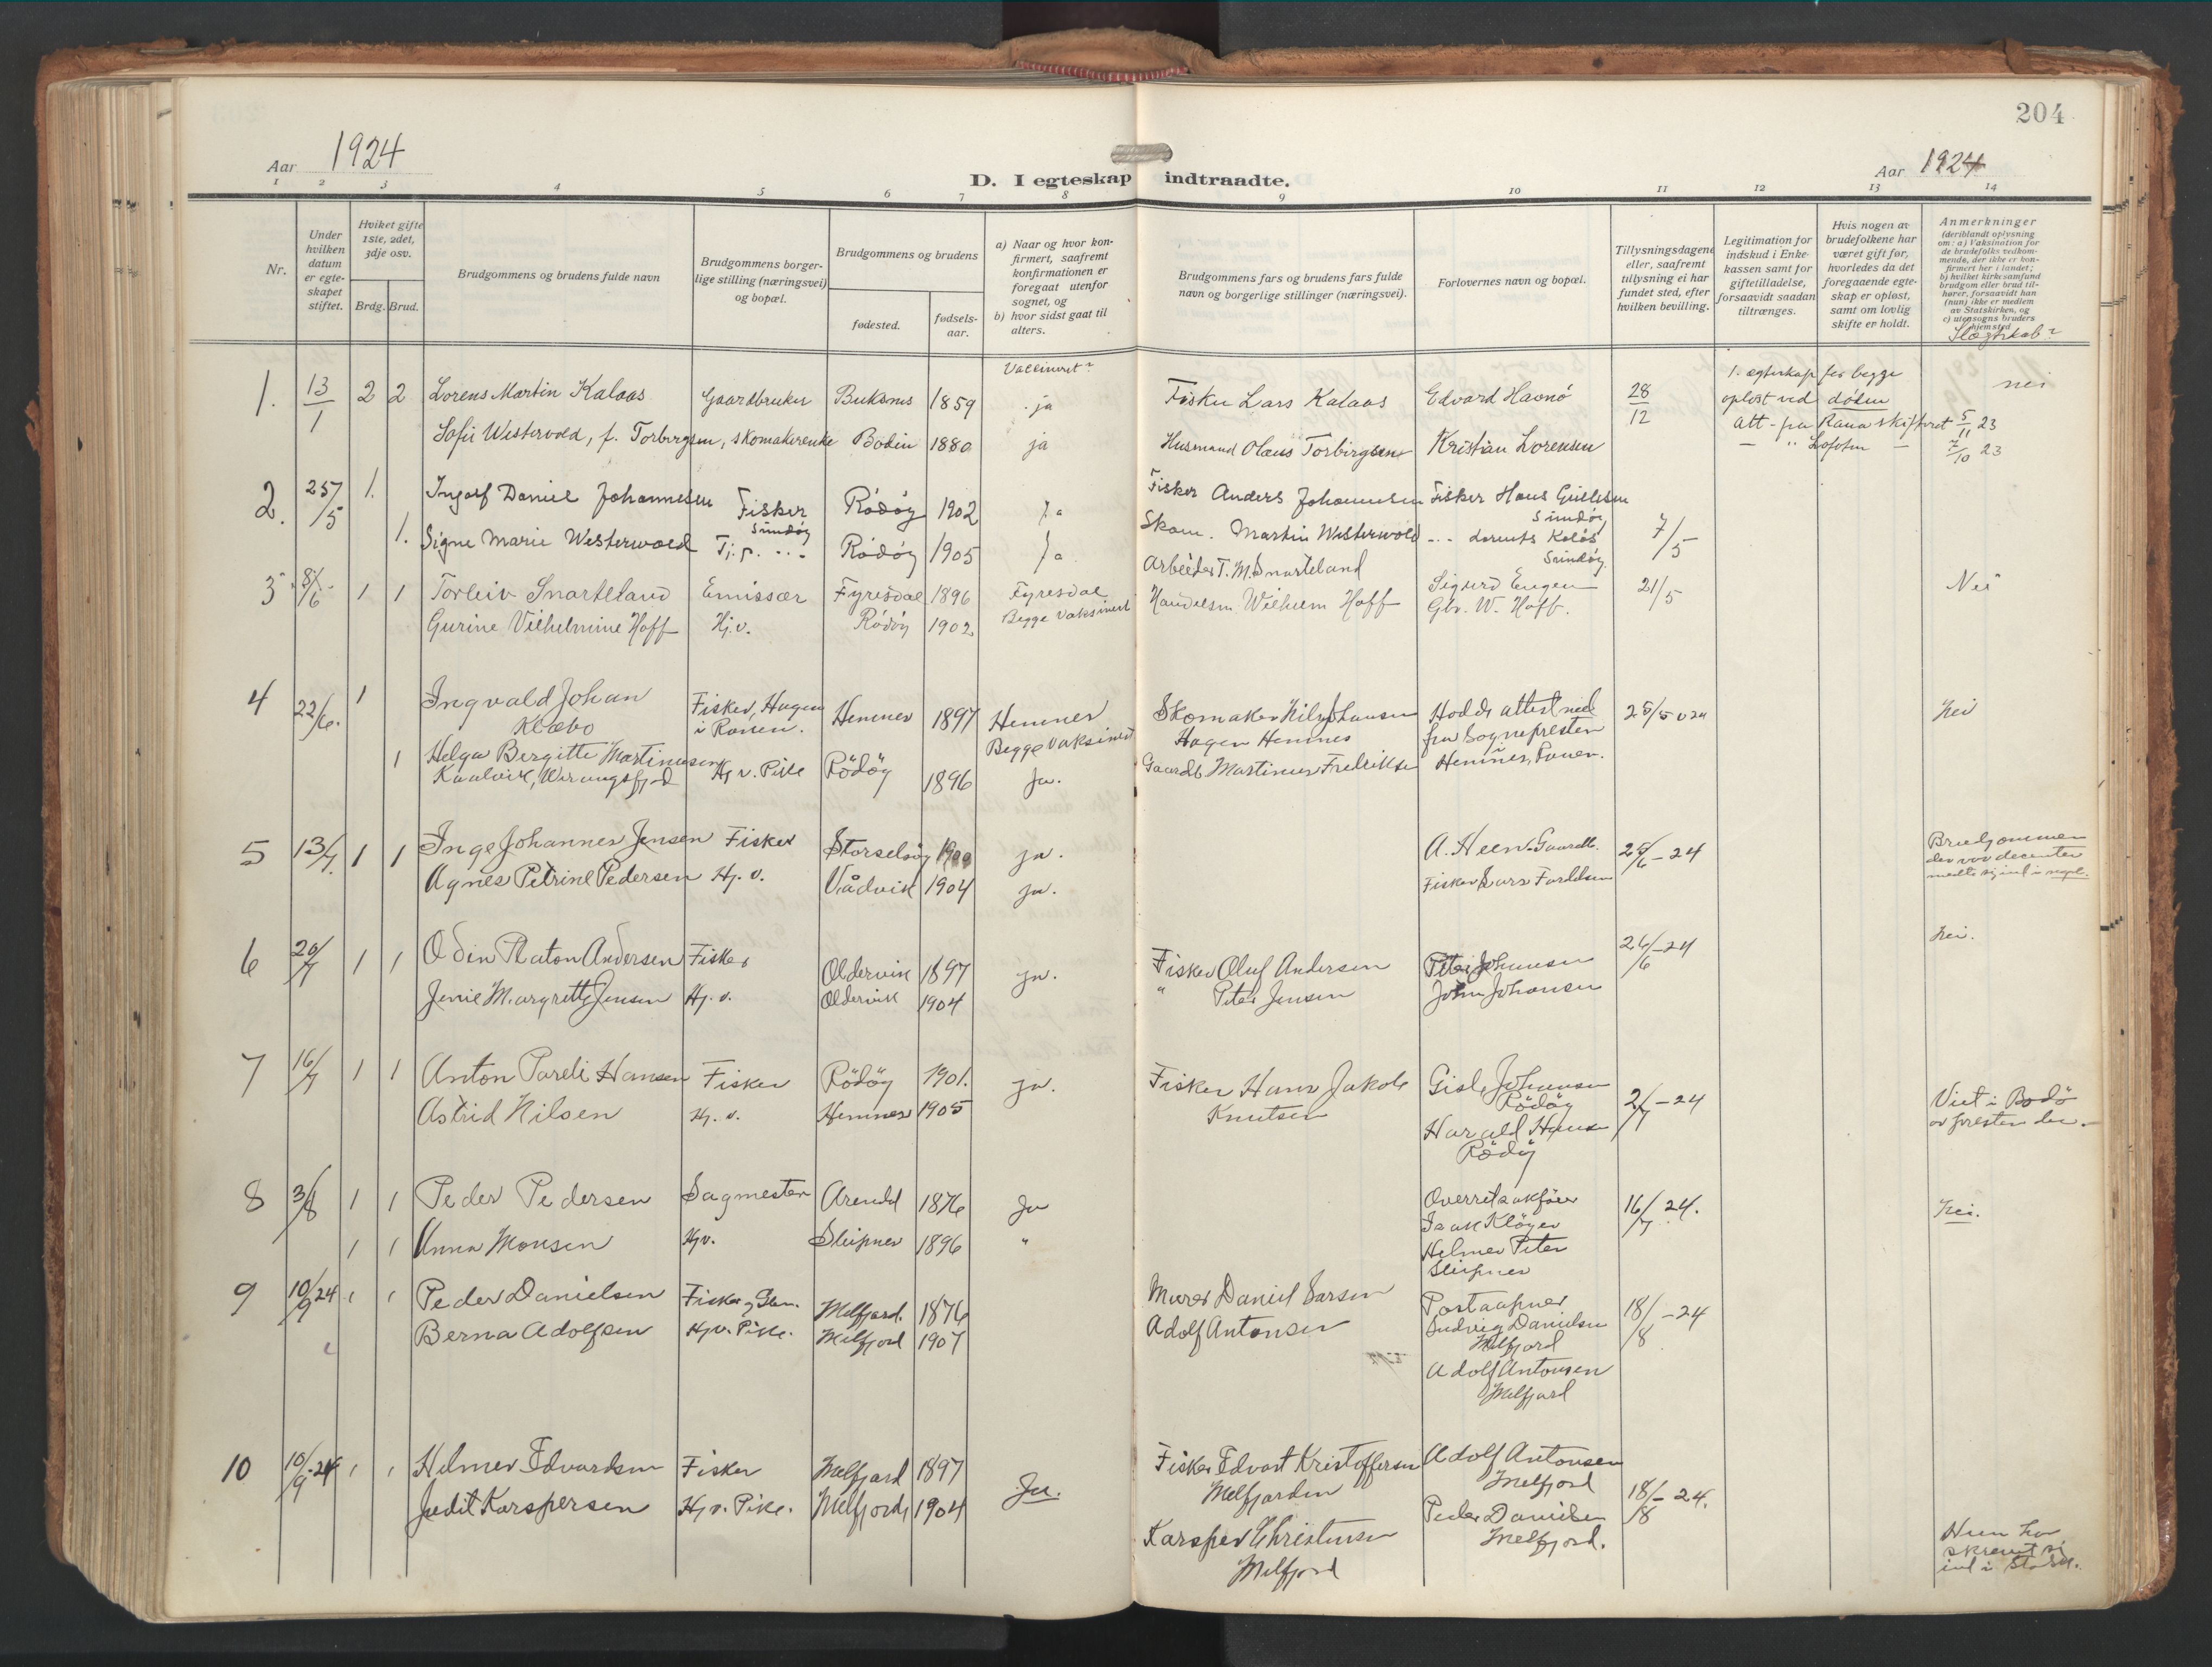 204
Aar 1924
Aar 1924
D. I egteskap indtraadte.
1 2 3 4 5 6 7 8 9 10 11 12 13 14
Nr.
Under hvilken datum er egteskapet stiftet.
Hvilket gifte 1ste, 2det, 3dje osv.
Brdg. Brud.
Brudgommens og brudens fulde navn
Brudgommens borgerlige stilling (næringsvei) og bopæl.
Brudgommens og brudens
fødested.
fødselsaar.
a) Naar og hvor konfirmert, saafremt konfirmationen er foregaat utenfor sognet, og
b) hvor sidst gaat til alters.
Brudgommens fars og brudens fars fulde navn og borgerlige stillinger (næringsvei).
Forlovernes navn og bopæl.
Tillysningsdagene eller, saafremt tillysning ei har fundet sted, efter hvilken bevilling.
Legitimation for indskud i Enkekassen samt for giftetilladelse, forsaavidt saadan tiltrænges.
Hvis nogen av brudefolkene har været gift før, hvorledes da det foregaaende egteskap er opløst, samt om lovlig skifte er holdt.
Anmerkninger (deriblandt oplysning om: a) Vaksination for de brudefolks vedkommende, der ikke er konfirmert her i landet; b) hvilket kirkesamfund brudgom eller brud tilhører, forsaavidt han (hun) ikke er medlem av Statskirken, og c) utensogns bruders hjemsted
Slægtskab?
Vaccineret?
1. 13/1 2 2 Lorens Martin Kalaas Gaardbruker Buksnes 1859 ja Fisker Lars Kalaas Edvard Havnö 28/12 1. ægteskap for begge nei
opløst ved døden
Sofie Westervold, f. Torbergsen, skomakerenke Bodin 1880 ja Husmand Olaus Torbergsen Kristian Lorensen Att. fra Rana skifteret 5/11 23
— " Lofoten — 7/10 23
2. 25/5 1. Ingolf Daniel Johannesen Fisker Rödöy 1902 Ja Fisker Anders Johannesen Fisker Hans
Sundöy
1. Signe Marie Westerwold Tj.p. Rödöy 1905 Ja Skom. Martin Westerwold Lorents Kolös 7/5
Sundöy
3 8/6 1 1 Torleiv Snarteland Emissær Fyresdal 1896 Fyresdal Arbeider T. M. Snarteland Sigurd Engen 21/5 Nei
Gurine Vilhelmine Hoff Hj.v. Rödöy 1902 Begge vaksinert Handelsm Wilhelm Hoff Gbr. W. Hoff.
4 22/6. 1 Ingvald Johan Fisker, Hagen Hemnes 1897 Hemnes Skomaker Hagen Hemnes Hodds attest ned 25/5 nei
Klæbo i Ranen. Begge vaksinert fra Sognepresten
1 Helga Bergitte Martinusen Hj v. Pike Rödöy 1896 Ja. Gaardb Martinus Fredriksen i Hemnes, Ranen.
5 13/7. 1 1 Inge Johannes Jensen Fisker Storselsöy 1900 ja. A. Heen Gaardb. 25/6-24 Brudgommen
Agnes Petrine Pedersen Hj. v. Vådvik 1904 ja. Fisker Lars
6 20/7 1 1 Odin Platon Andersen Fisker Oldervik 1897 ja. Fisker Oluf Andersen Peter Johansen 26/6-24 nei.
Jenie Margrette Jensen Hj. v. Oldervik 1904 " Peter Jensen John Johansen
7 16/7 1 1 Anton Pareli Hansen Fisker Rödöy 1901. ja. Fisker Hans Jakob Gisle Johansen 2/7-24 Viet i Bodö
Astrid Nilsen Hj. v. Hemnes 1905 Knutsen Rödöy av presten der.
Harald Hansen
Rödöy
8 3/8 1 1 Peder Pedersen Sagmester Arendal 1876 Ja Overretsakfører 16/7 24. nei.
1 1 Anna Monsen Hjv. Sleipnes 1896 " Isak Klöger
Helmer Peter
Sleipnes
9 10/9 24 1 1 Peder Danielsen Fisker Melfjord. 1876 Murer Daniel Larsen Postaapner 18/8-24
Berna Adolfsen Hjv. Pike. Melfjord 1907 Adolf Antonsen Ludvig Danielsen
Melfjord
Adolf Antonsen
Melfjord
10 10/9-24 1 1 Helmer Edvardsen Fisker Melfjord 1897 Ja. Fisker Edvart Kristoffersen Adolf Antonsen 18/8-24.
Melfjorden Melfjord
Judit Karspersen Hj v. Pike. Melfjord 1904 Karsper Christensen Peder Danielsen Hun har
Melfjord Melfjord. skrevet sig
ind i Statsk.